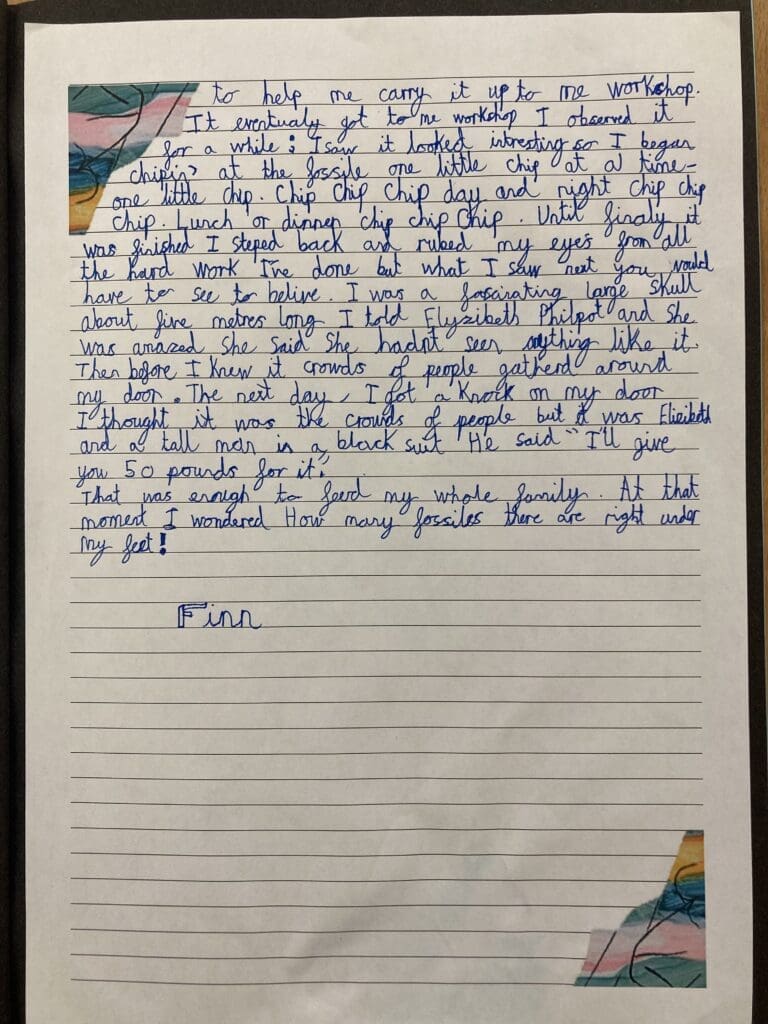 to help me carry it up to me workshop.
It eventualy got to me workshop I observed it
for a while; I saw it looked intresting so I began
chiping at the fossile one little chip at a time-
one little chip. Chip Chip Chip day and night chip chip
chip. Lunch or dinner chip chip Chip. Until finaly it
was finished I steped back and rubed my eyes from all
the hard work I've done but what I saw next you would
have to see to belive. I was a fascinating large skull
about five metres long I told Elyzibeth Philpot and she
was amazed she said she hadn't seen anything like it.
Then before I knew it crowds of people gatherd around
my door. The next day, I got a knock on my door
I thought it was the crowds of people but it was Elizibeth
and a tall man in a black suit He said "I'll give
you 50 pounds for it."
That was enough to feed my whole family. At that
moment I wondered How many fossiles there are right under
my feet!
Finn